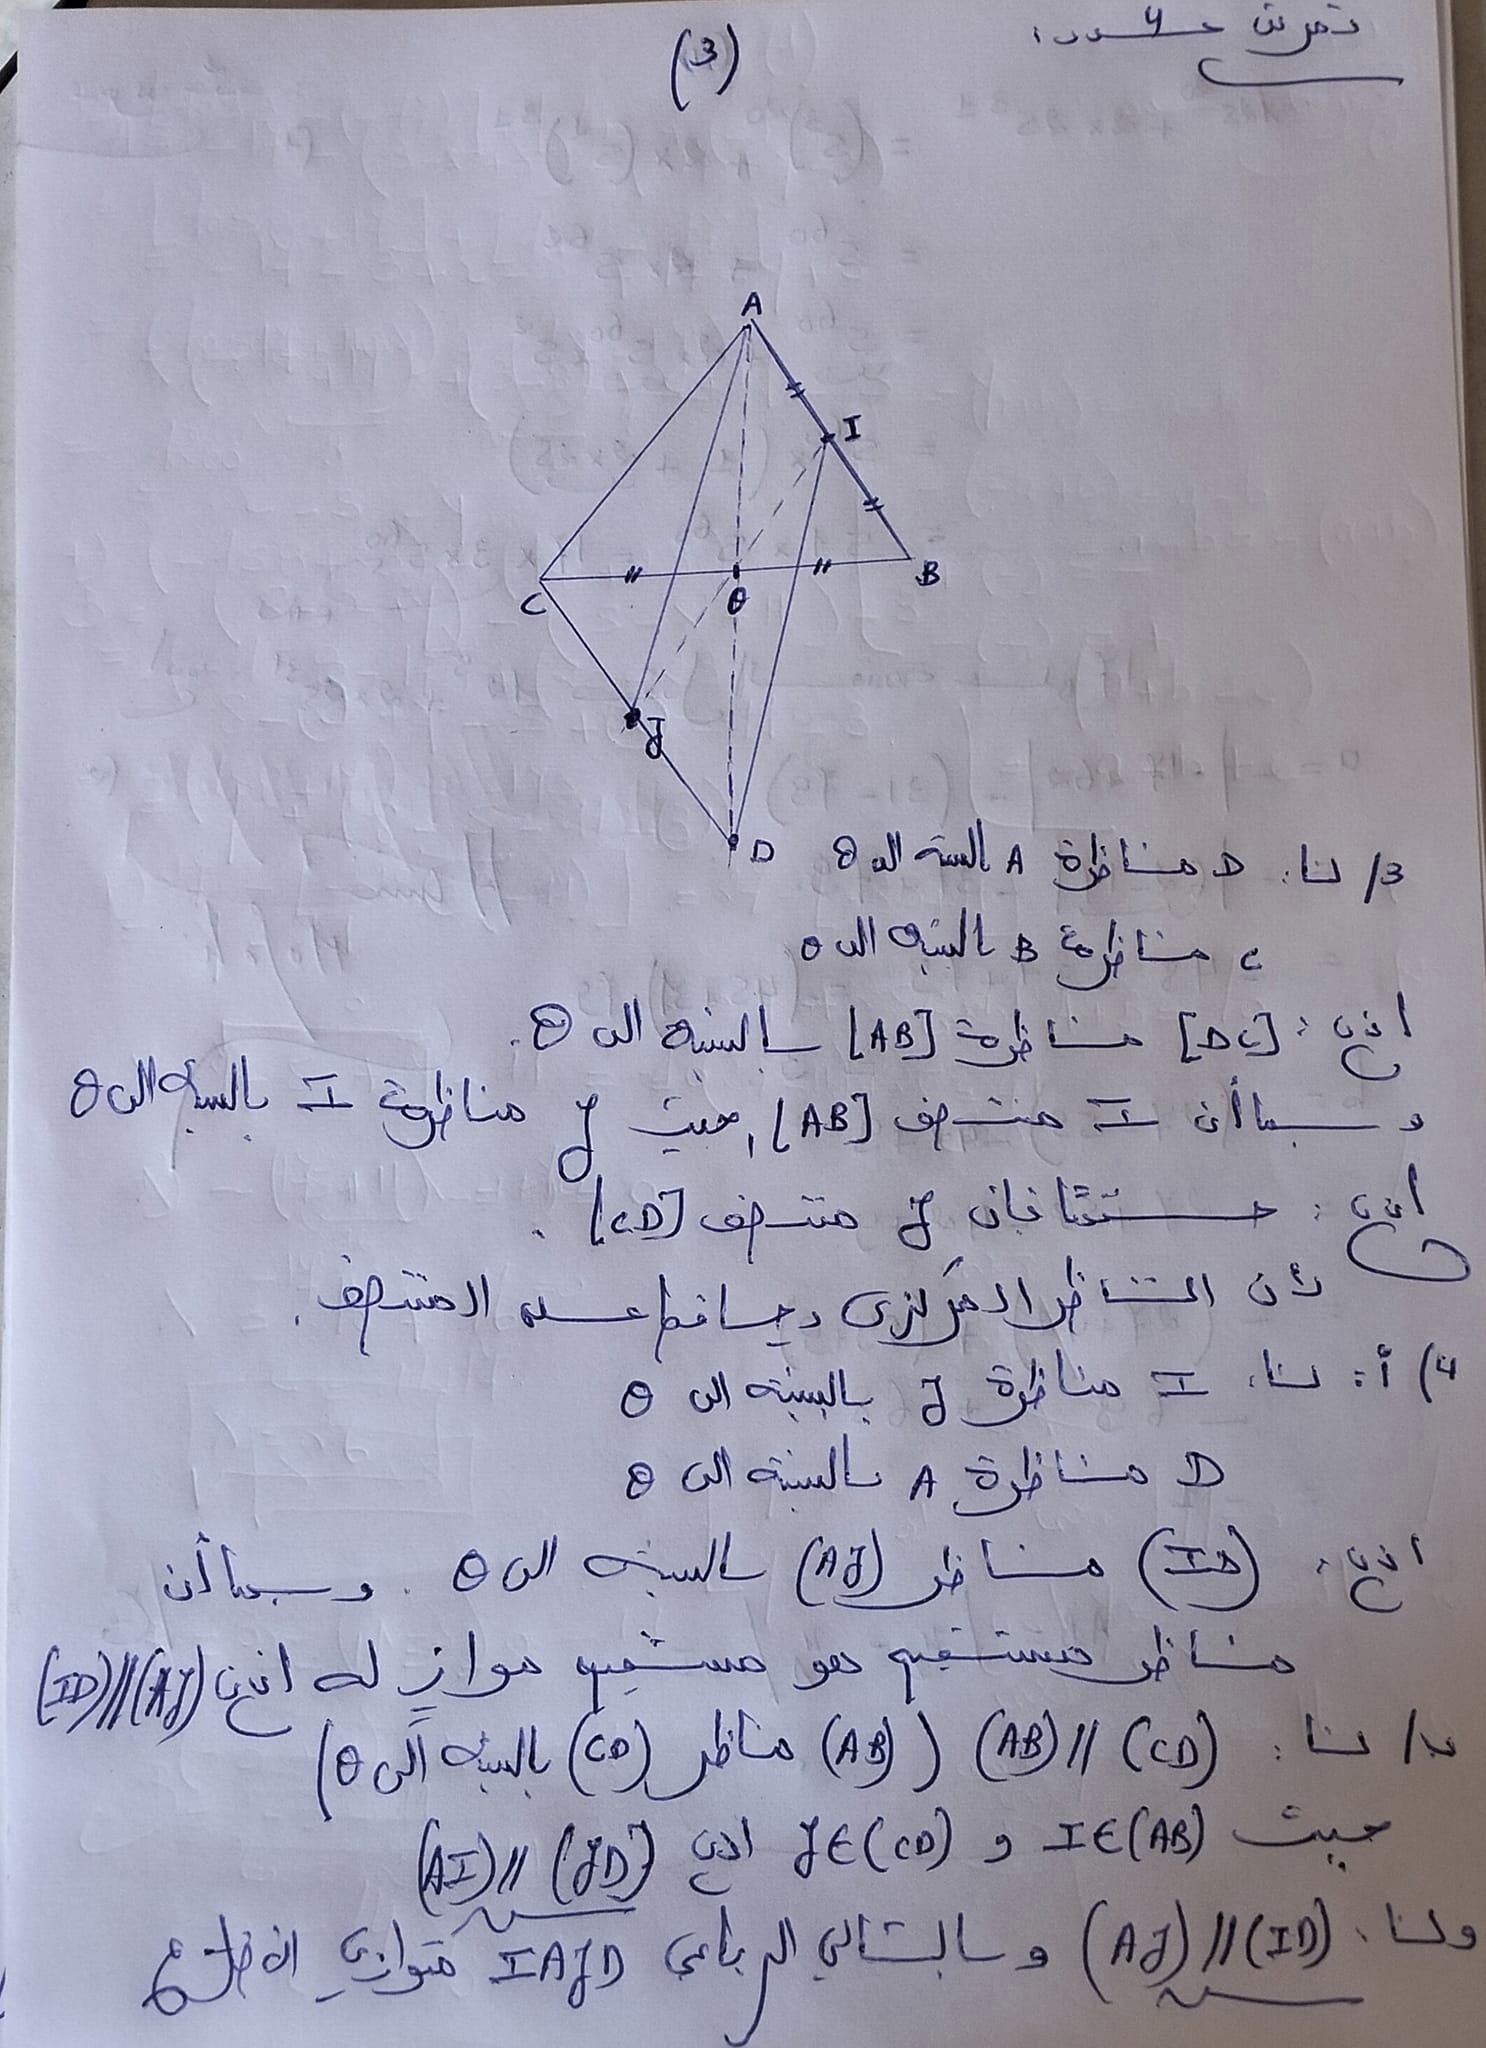 (3)
تمرين عدد 4:
A
I
B
C
O
J
D
3/ لنا: D مناظرة A بالنسبة الى O
C مناظرة B بالنسبة الى O
اذن: [DC] مناظرة [AB] بالنسبة الى O.
وبما أن I منتصف [AB], حيث J مناظرة I بالنسبة الى O
اذن: حتمًا فإن J منتصف [CD].
لأن التناظر المركزي يحافظ على المنتصف.
4) أ: لنا: I مناظرة J بالنسبة الى O
D مناظرة A بالنسبة الى O
اذن: (ID) مناظر (AJ) بالنسبة الى O. وبما أن
مناظر مستقيم هو مستقيم موازٍ له اذن (ID)//(AJ)
ب/ لنا: (AB)//(CD) ((AB) مناظر (CD) بالنسبة الى O)
حيث I∈(AB) و J∈(CD) اذن (AI)//(JD)
ولنا: (AJ)//(ID) وبالتالي الرباعي IAJD متوازي الاضلاع